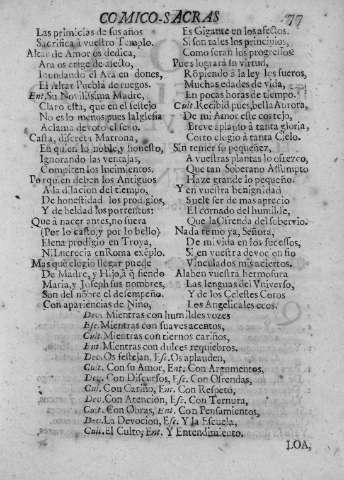 COMICO-SACRAS 77
Las primicias de sus años
Sacrifica à vuestro Templo.
Altar de Amor os dedica,
Ara os erige de afecto,
Inundando el Ara en dones,
El Altar Puebla de ruegos.
Ent. Su Nobilissima Madre,
Claro està, que en el festejo
No es lo menos, pues la Iglesia
Aclama devoto el sexo.
Casta, discreta Matrona,
En quien lo noble, y honesto,
Ignorando las ventajas,
Compiten los lucimientos.
Porque deben los Antiguos
A la dilacion del tiempo,
De honestidad los prodigios,
Y de beldad los portentos:
Que à nacer antes, no fuera
(Per lo casto, y por lo bello)
Elena prodigio en Troya,
Ni Lucrecia en Roma exẽplo.
Mas què elogio llegar puede
De Madre, y Hijo, à quiẽ siendo
Maria, y Joseph sus nombres,
Son del nobre el desempeño.
Con apariencias de Niño,
Es Gigante en los afectos.
Si son tales los principios,
Como seràn los progressos?
Pues logrará su virtud,
Rõpiendo à la ley los fueros,
Muchas edades de vida,
En pocas horas de tiempo.
Cult. Recibid pues, bella Aurora,
De mi Amor este cortejo,
Breve aplauso à tanta gloria,
Corto elogio à tanta Cielo.
Sin temer su pequeñez,
A vuestras plantas lo ofrezco,
Que tan Soberano Assumpto
Haze grande lo pequeño.
Y en vuestra benignidad
Suele ser de mas aprecio
El cornado del humilde,
Que la Ofrenda del sobervio.
Nada temo ya, Señora,
De mi vida en los sucessos,
Si en vuestra devocion fio
Vinculados mis aciertos.
Alaben vuestra hermosura
Las lenguas del Vniverso,
Y de los Celestes Coros
Los Angelicales ecos.
Dev. Mientras con humildes vozes
Esc. Mientras con suaves acentos,
Cult. Mientras con tiernos cariños,
Ent. Mientras con dulces requiebros.
Dev. Os festejan, Esc. Os aplauden,
Cult. Con su Amor, Ent. Con Argumentos.
Dev. Con Discursos, Esc. Con Ofrendas,
Cul. Con Cariño, Ent. Con Respeto,
Dev. Con Atencion, Esc. Con Ternura,
Cult. Con Obras, Ent. Con Pensamientos,
Dev. La Devocion, Esc. Y la Escuela,
Cult. El Culto, Ent. Y Entendimiento.
LOA,